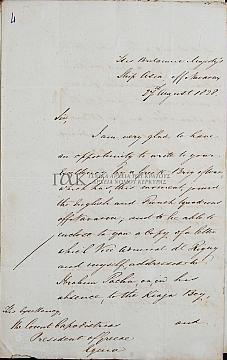 4
His Britannic Majesty's
Ship Asia off Navarin
27 August 1828
Sir,
I am very glad to have
an opportunity to write to your
Excellency by the
which has, this moment, joined
the English and French Squadrons
off Navarin, and to be able to
enclose to you a Copy of a letter
which Vice Admiral de Rigny
and myself addressed to
Ibrahim Pacha, or, in his
absence to the Kiaja Bey,
and
His Excellency,
the Count Capodistrias
President of Greece
Egina